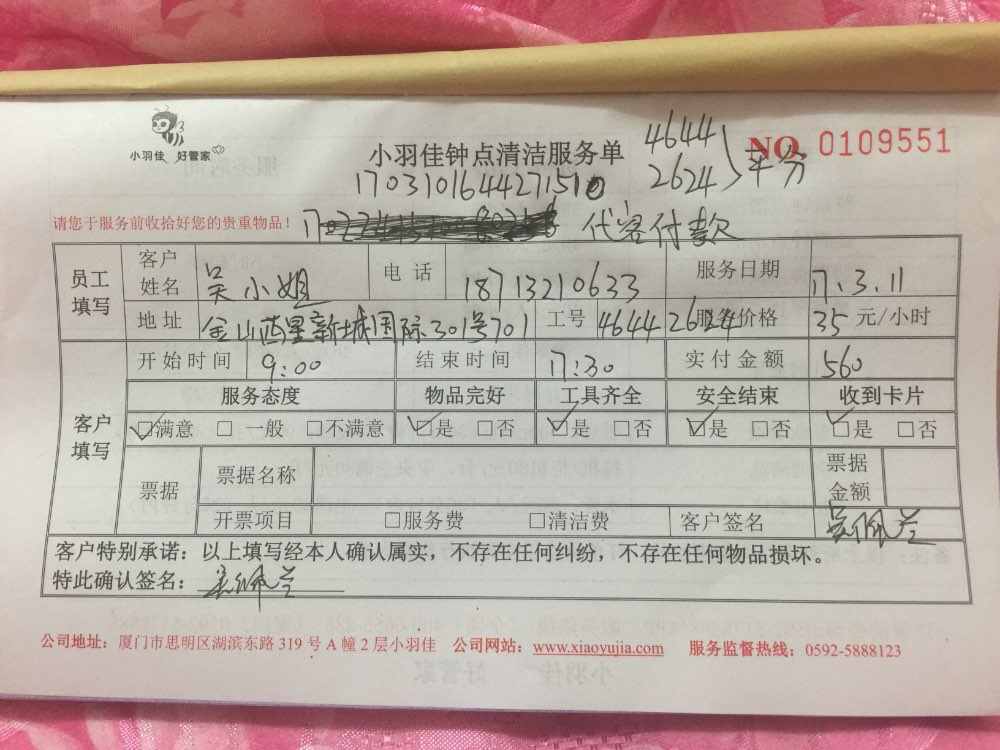 小羽佳 好管家
小羽佳钟点清洁服务单
4644
2624 平分
NO. 0109551
170310164427151
请您于服务前收拾好您的贵重物品!
代客付款
员工填写 客户姓名 吴小姐 电话 18713210633 服务日期 17.3.11
地址 金山西星新城国际301号701 工号 4644 2624 服务价格 35 元/小时
客户填写 开始时间 9:00 结束时间 17:30 实付金额 560
服务态度 物品完好 工具齐全 安全结束 收到卡片
☑满意 □一般 □不满意 ☑是 □否 ☑是 □否 ☑是 □否 ☑是 □否
票据 票据名称 票据金额
开票项目 □服务费 □清洁费 客户签名 吴佩兰
客户特别承诺:以上填写经本人确认属实,不存在任何纠纷,不存在任何物品损坏。
特此确认签名:吴佩兰
公司地址:厦门市思明区湖滨东路 319 号 A 幢 2 层小羽佳 公司网站:www.xiaoyujia.com 服务监督热线:0592-5888123